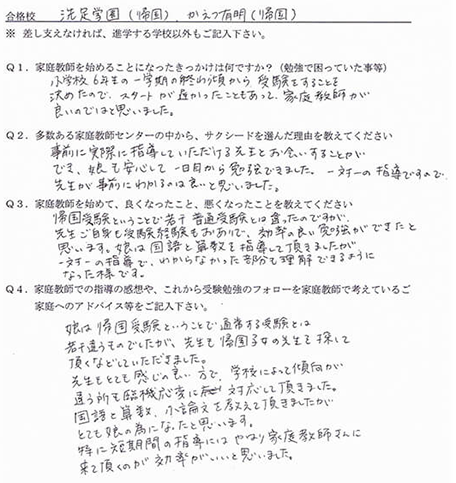 合格校　洗足学園（帰国）、かえつ有明（帰国）
※ 差し支えなければ、進学する学校以外もご記入下さい。
Ｑ１．家庭教師を始めることになったきっかけは何ですか？（勉強で困っていた事等）
小学校６年生の一学期の終わり頃から受験をすることを
決めたので、スタートが遅かったこともあって、家庭教師が
良いのではと思いました。
Ｑ２．多数ある家庭教師センターの中から、サクシードを選んだ理由を教えてください
事前に実際に指導していただける先生とお会いすることが
でき、娘も安心して一日目から勉強できました。一対一の指導ですので、
先生が事前にわかるのは良いと思いました。
Ｑ３．家庭教師を始めて、良くなったこと、悪くなったことを教えてください
帰国受験ということで若干普通受験とは違ったのですが、
先生ご自身も受験経験もおありで、効率の良い勉強ができたと
思います。娘は国語と算数を指導して頂きましたが
一対一の指導で、わからなかった部分も理解できるように
なった様です。
Ｑ４．家庭教師での指導の感想や、これから受験勉強のフォローを家庭教師で考えているご
家庭へのアドバイス等をご記入下さい。
娘は帰国受験ということで通常する受験とは
若干違うものでしたが、先生も帰国子女の先生を探して
頂くなどしていただきました。
先生もとても感じの良い方で、学校によって傾向が
違う所も臨機応変に対応して頂きました。
国語と算数、小論文を教えて頂きましたが
とても娘の為になったと思います。
特に短期間の指導にはやはり家庭教師さんに
来て頂くのが効率がいいと思いました。